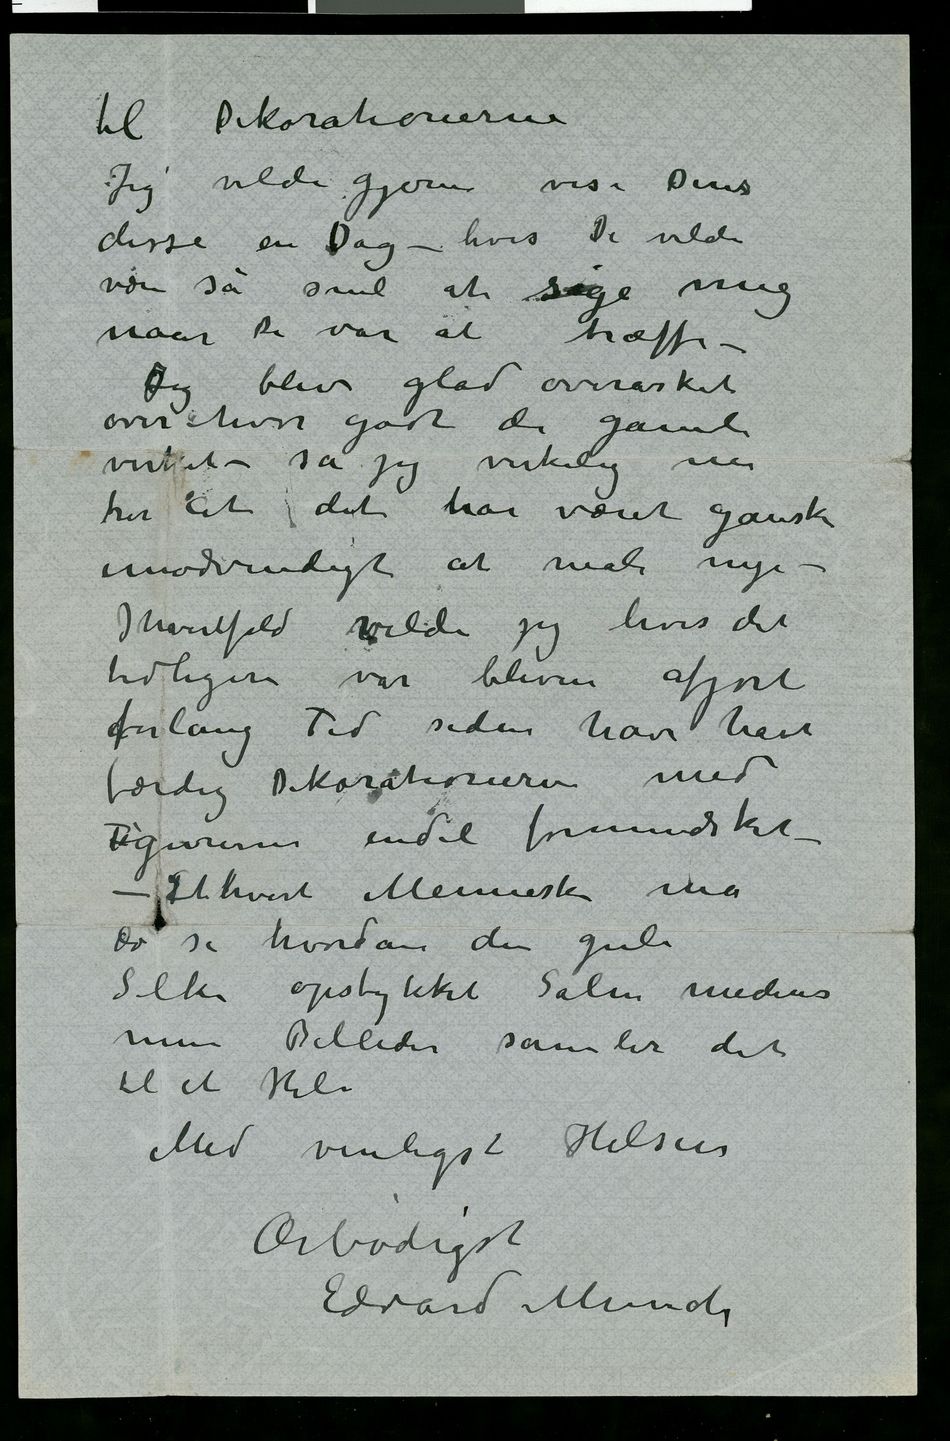 til Dekorationerne
Jeg vilde gjerne vise Dem
disse en Dag – hvis De vilde
være så snil at sige mig
naar De var at træffe –
Jeg blev glad overasket
over hvor godt de gamle
virket – så jeg virkelig nu
tror at det har været ganske
unødvendigt at male nye –
Ihvertfald vilde jeg hvis det
tidligere var bleven afgjort
for lang Tid siden have havt
færdig Dekorationerne med
Figurerne endel formindsket –
– Ethvert Menneske må
da se hvordan den gule
Silke opstykket Salen medens
mine Billeder samler det
til et Hele
Med venligst Hilsen
Ærbødigst
Edvard Munch